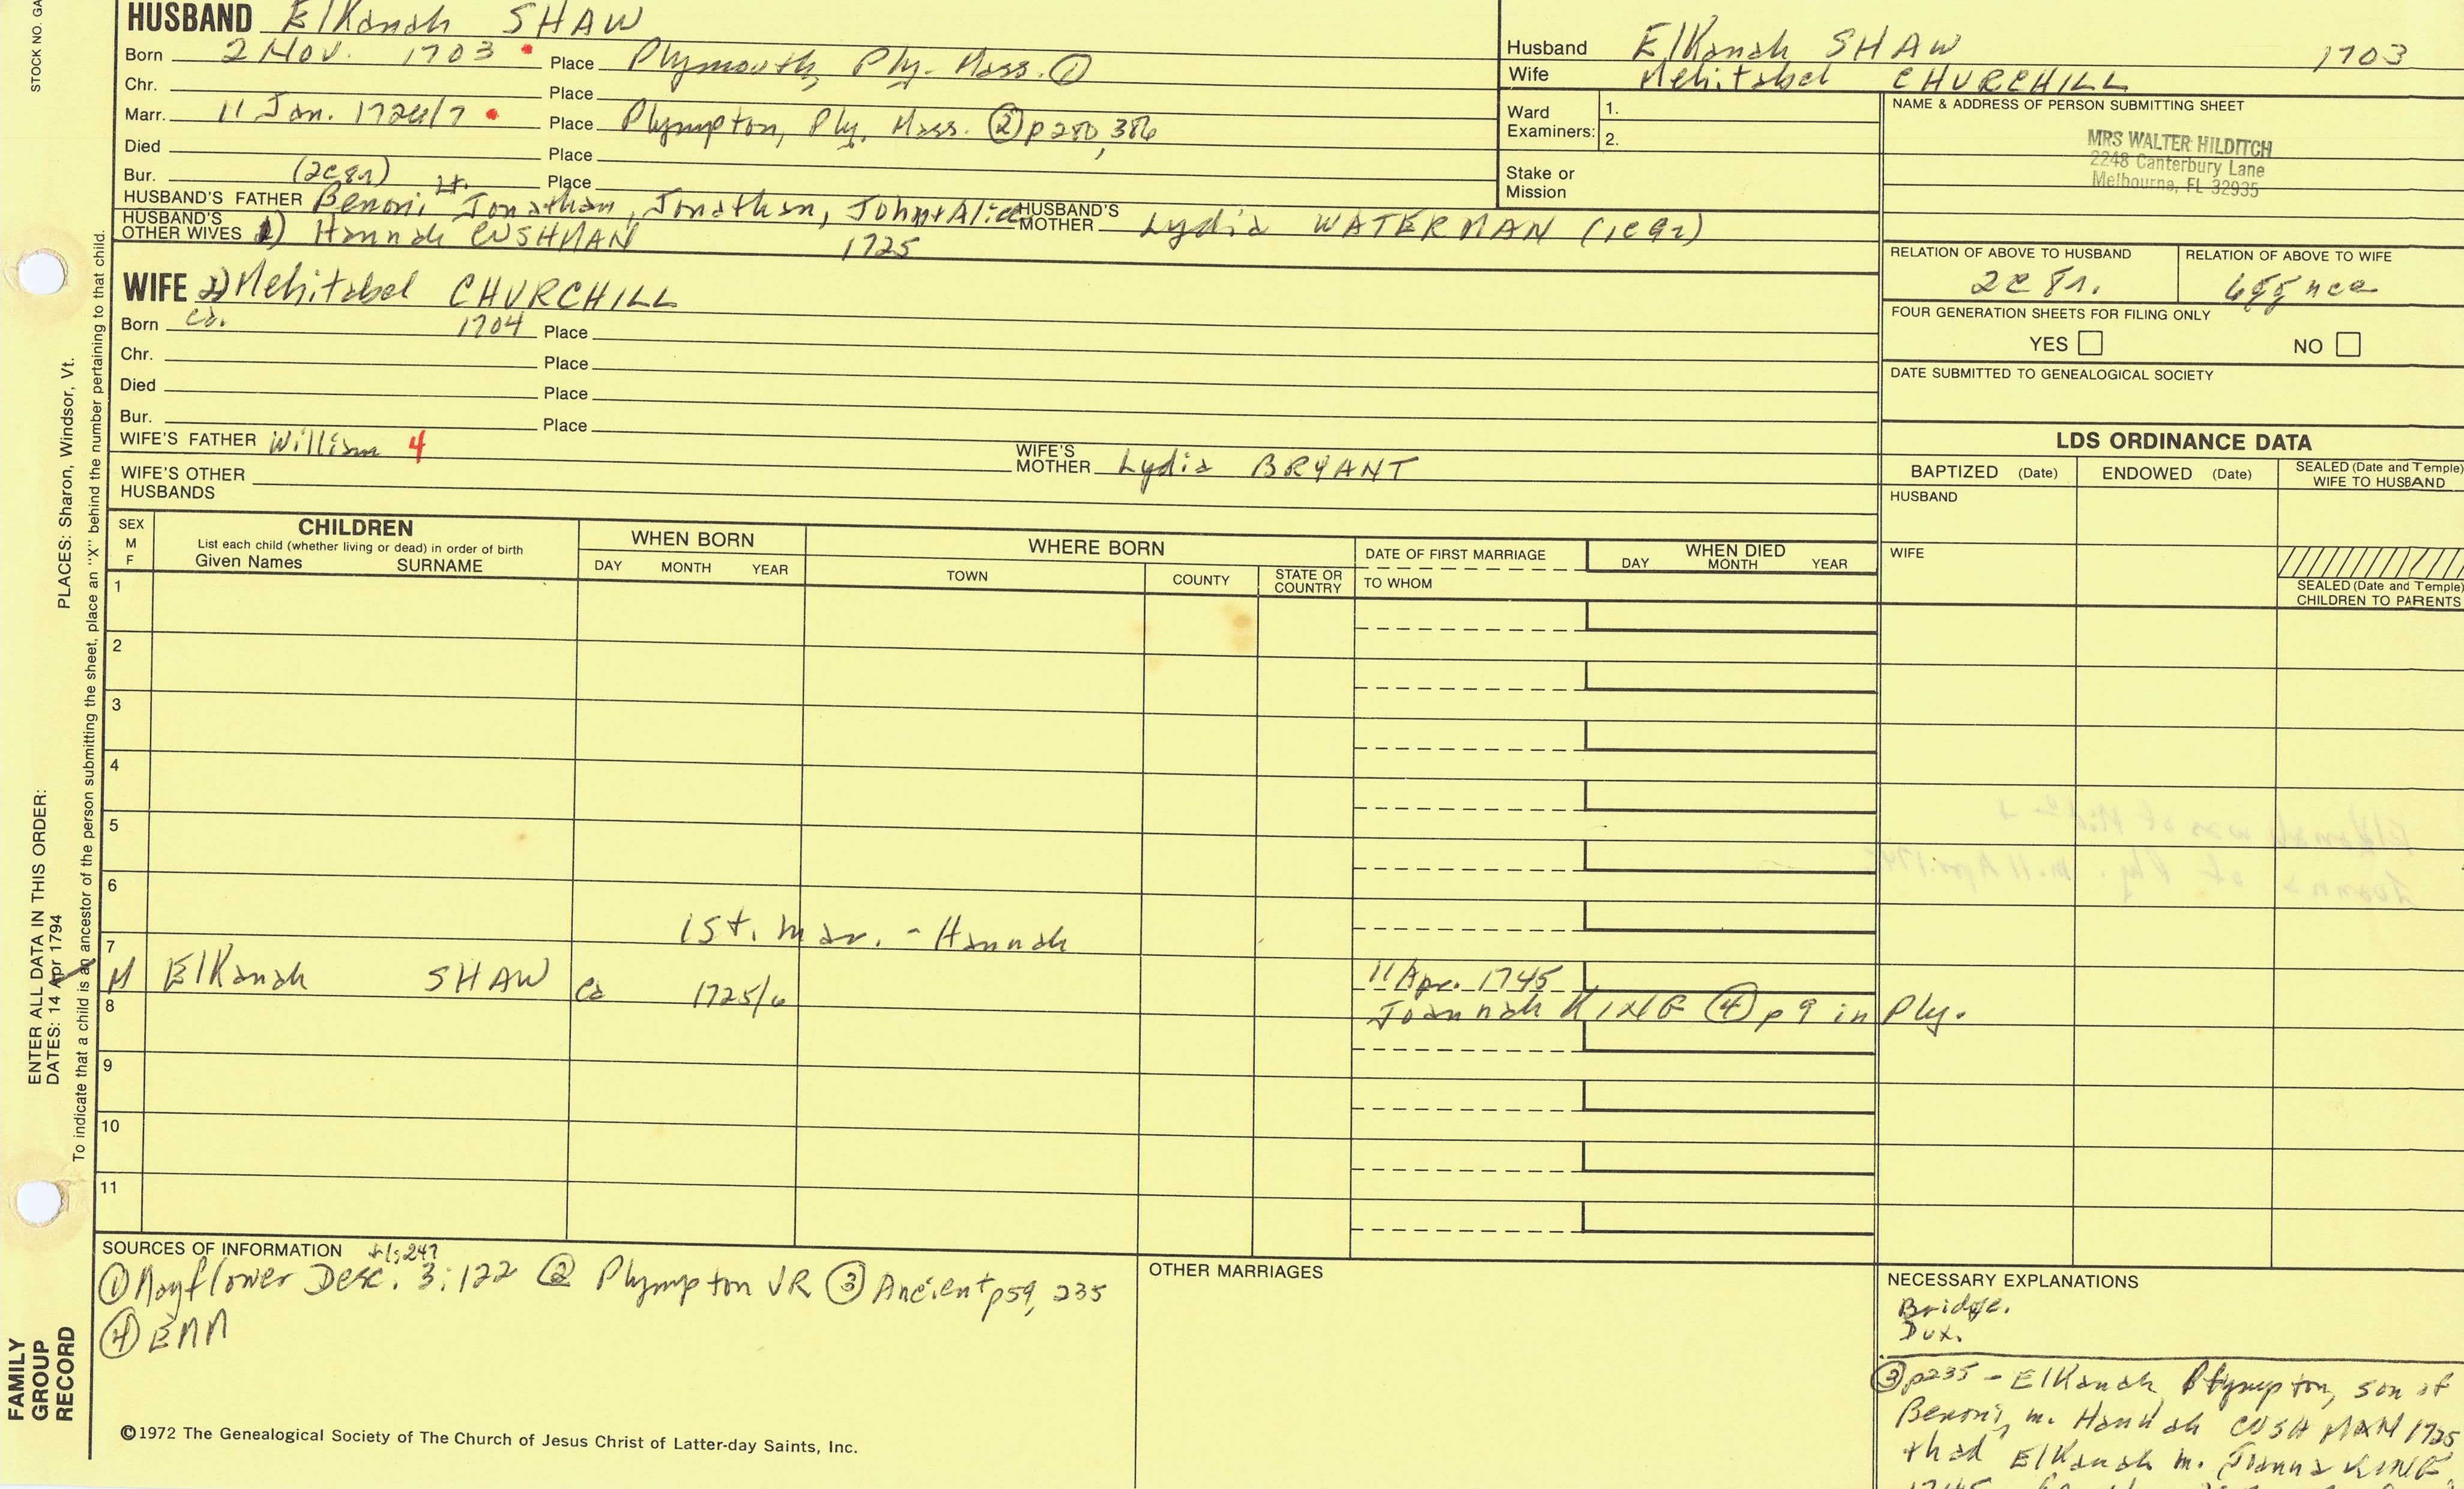 HUSBAND Elkanah SHAW
Born 2 Nov. 1703 Place Plymouth, Ply. Mass. ①
Chr. Place
Marr. 11 Jan. 1726/7 Place Plympton, Ply, Mass. ② p 280, 386
Died Place
Bur. (2C8r) Place
HUSBAND'S FATHER Benoni, Lt. Jonathan, Jonathan, John+Alice HUSBAND'S MOTHER Lydia WATERMAN (1C9r)
HUSBAND'S OTHER WIVES 1) Hannah CUSHMAN 1725
WIFE 2) Mehitabel CHURCHILL
Born ca. 1704 Place
Chr. Place
Died Place
Bur. Place
WIFE'S FATHER William 4 WIFE'S MOTHER Lydia BRYANT
WIFE'S OTHER HUSBANDS
Husband Elkanah SHAW 1703
Wife Mehitabel CHURCHILL
Ward Examiners: 1.
2.
Stake or Mission
NAME & ADDRESS OF PERSON SUBMITTING SHEET
MRS WALTER HILDITCH
2248 Canterbury Lane
Melbourne, FL 32935
RELATION OF ABOVE TO HUSBAND RELATION OF ABOVE TO WIFE
2C8r.
FOUR GENERATION SHEETS FOR FILING ONLY
YES NO
DATE SUBMITTED TO GENEALOGICAL SOCIETY
LDS ORDINANCE DATA
BAPTIZED (Date) ENDOWED (Date) SEALED (Date and Temple) WIFE TO HUSBAND
HUSBAND
WIFE
SEALED (Date and Temple) CHILDREN TO PARENTS
SEX M F
CHILDREN
List each child (whether living or dead) in order of birth
Given Names SURNAME
WHEN BORN
DAY MONTH YEAR
WHERE BORN
TOWN COUNTY STATE OR COUNTRY
DATE OF FIRST MARRIAGE
TO WHOM
WHEN DIED
DAY MONTH YEAR
1
2
3
4
5
6
1st. mar. - Hannah
7
M Elkanah SHAW ca 1725/6 11 Apr. 1745
8 Joannah KING ④ p 9 in Ply.
9
10
11
SOURCES OF INFORMATION +1:247
① Mayflower Desc. 3:122 ② Plympton VR ③ Ancient p59, 235
④ EMM
OTHER MARRIAGES
NECESSARY EXPLANATIONS
Bridge.
Dux.
③ p235 - Elkanah, Plympton, son of
Benoni, m. Hannah CUSHMAN 1725,
+ had Elkanah m. Joanna KING,
©1972 The Genealogical Society of The Church of Jesus Christ of Latter-day Saints, Inc.
STOCK NO. GA
PLACES: Sharon, Windsor, Vt.
To indicate that a child is an ancestor of the person submitting the sheet, place an "X" behind the number pertaining to that child.
ENTER ALL DATA IN THIS ORDER:
DATES: 14 Apr 1794
FAMILY
GROUP
RECORD